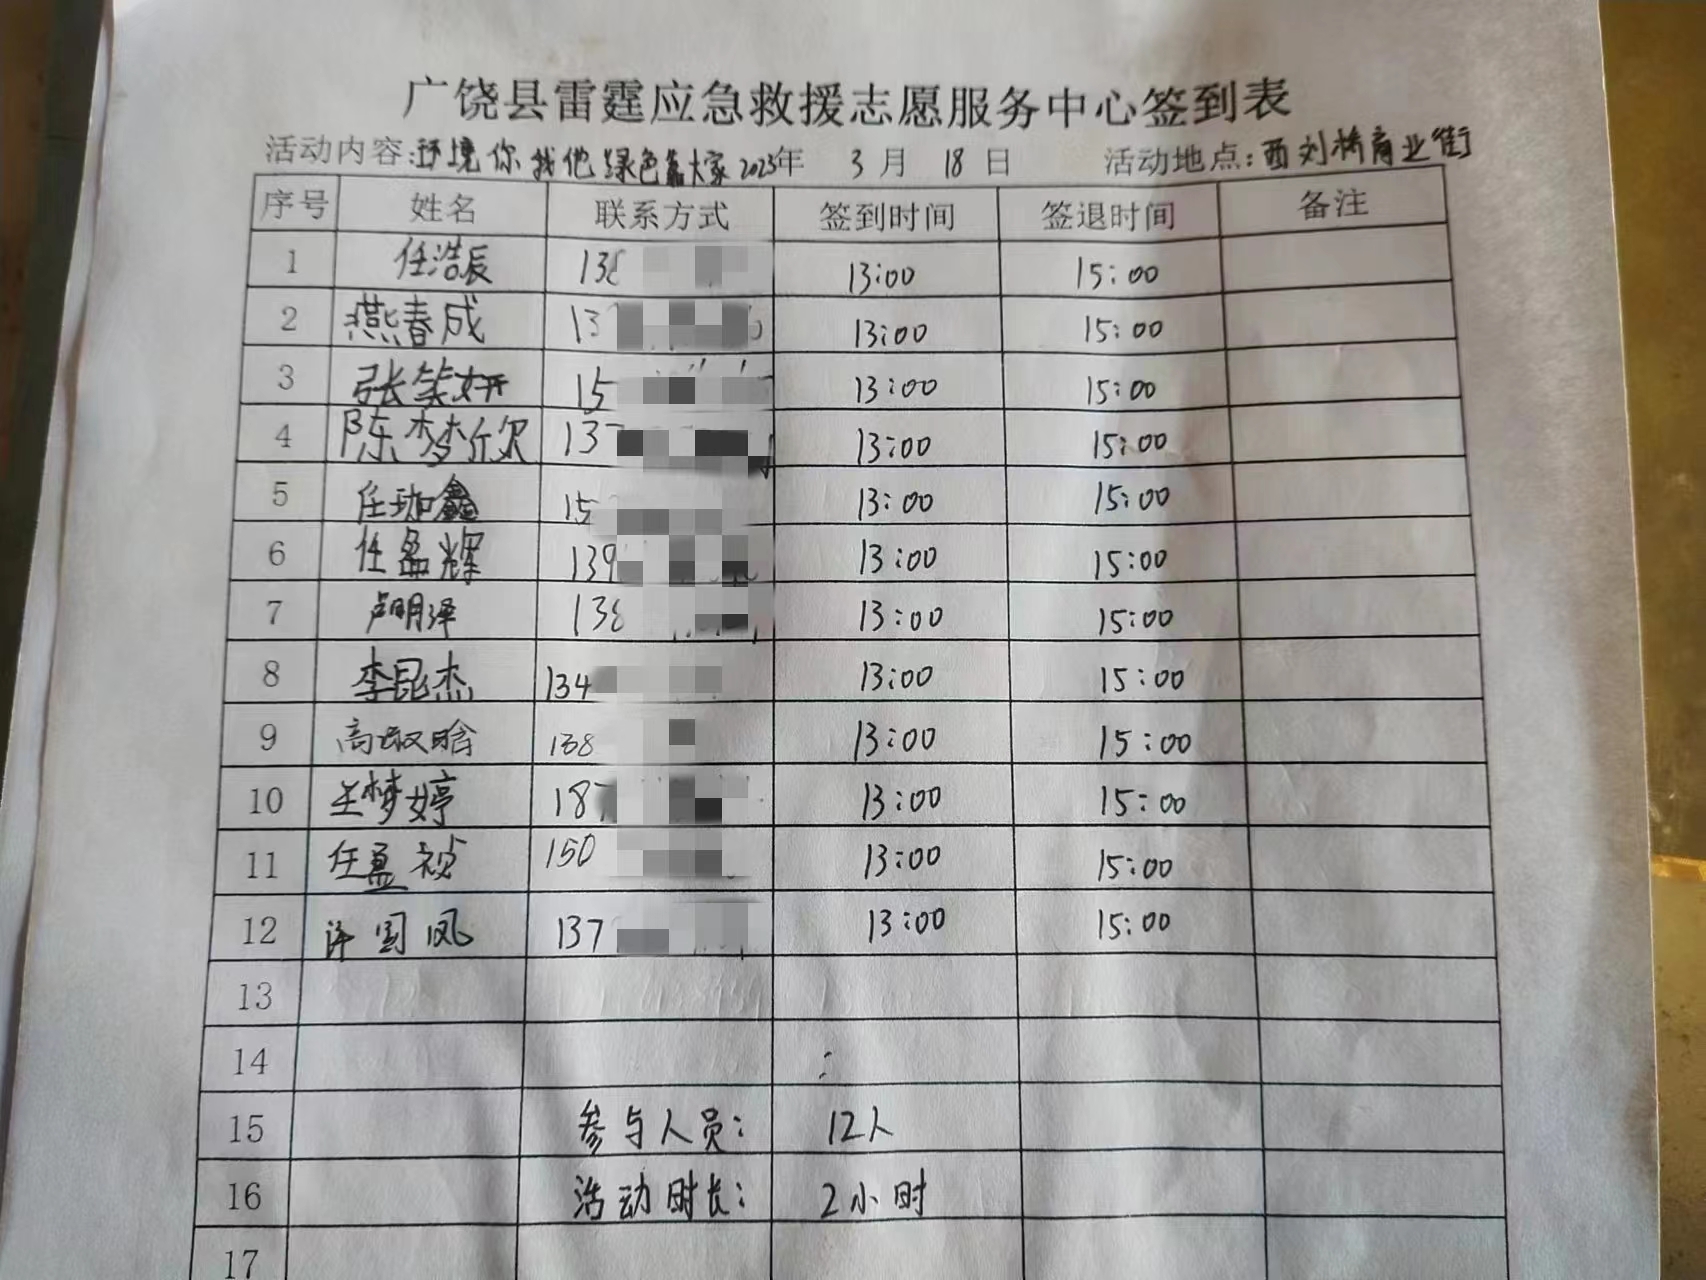 广饶县雷霆应急救援志愿服务中心签到表
活动内容:环境你我他绿色靠大家2023年 3月 18日 活动地点:西刘桥商业街
序号 姓名 联系方式 签到时间 签退时间 备注
1 任浩辰 138 13:00 15:00
2 燕春成 13 13:00 15:00
3 张笑妍 15 13:00 15:00
4 陈梦尔 137 13:00 15:00
5 任珈鑫 15 13:00 15:00
6 任盈辉 139 13:00 15:00
7 卢明泽 138 13:00 15:00
8 李昆杰 134 13:00 15:00
9 高 晗 138 13:00 15:00
10 王梦婷 187 13:00 15:00
11 任盈祯 150 13:00 15:00
12 许国凤 137 13:00 15:00
13
14 :
15 参与人员: 12人
16 活动时长: 2小时
17